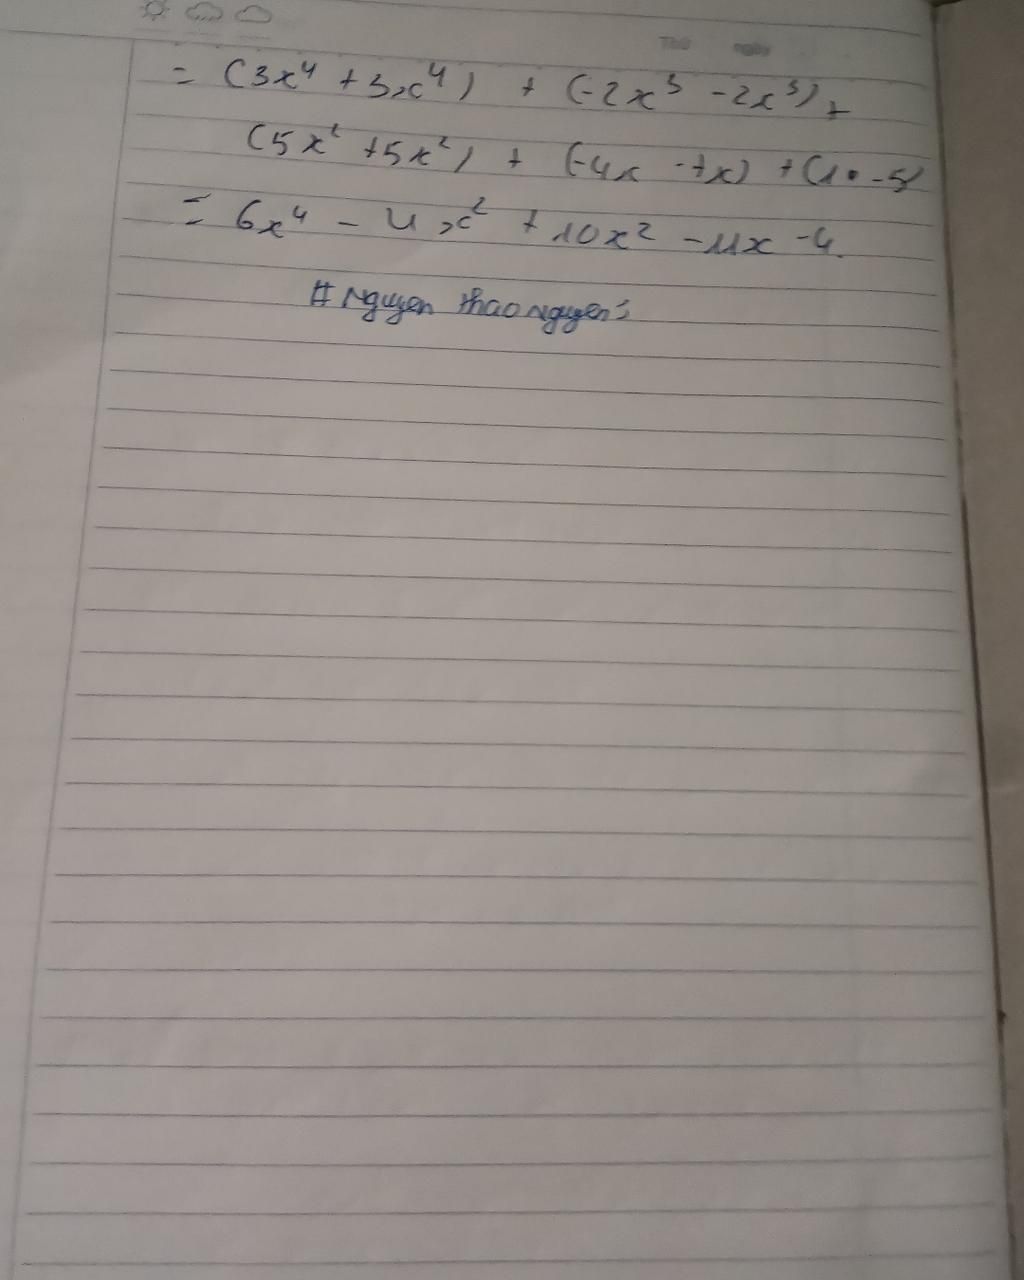 Thứ ngày
= (3x⁴ + 3x⁴) + (-2x³ - 2x³) +
(5x² + 5x²) + (-4x - 7x) + (10 - 5)
= 6x⁴ - 4x² + 10x² - 11x - 4.
# Nguyen thao nguyen